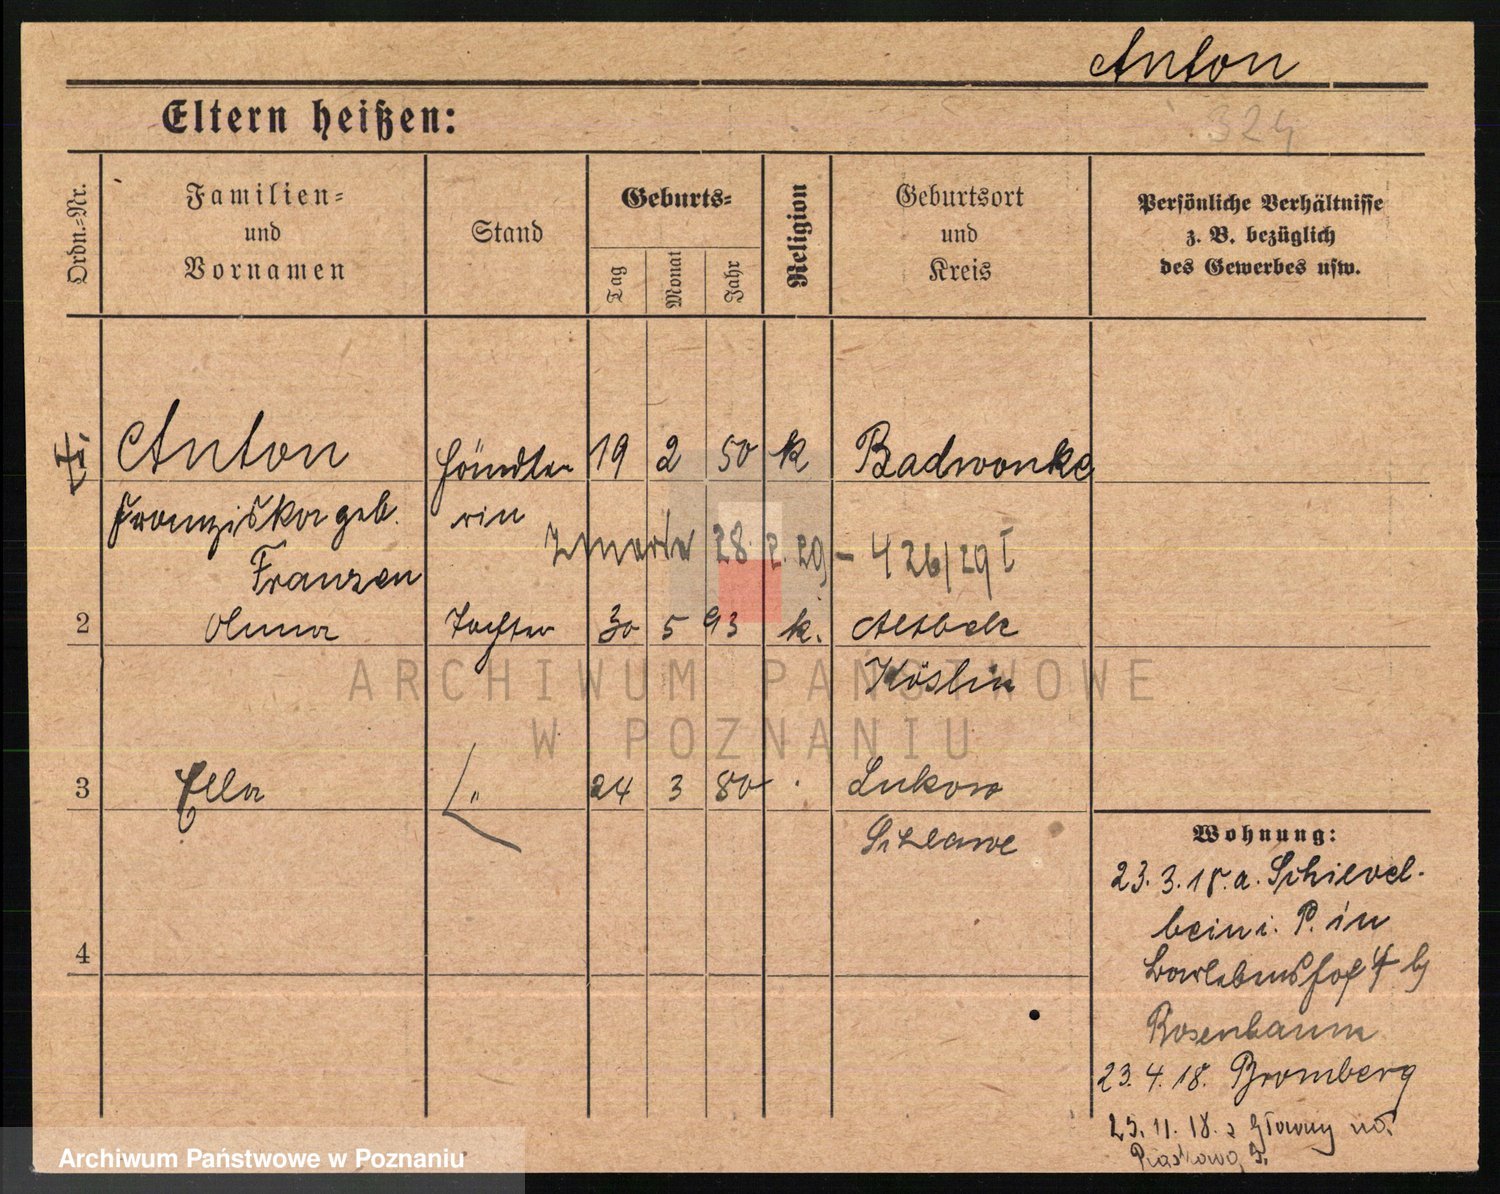 Anton
324
Eltern heißen:
Ordn.=Nr.
Familien=
und
Vornamen
Stand
Geburts=
Tag
Monat
Jahr
Religion
Geburtsort
und
Kreis
Persönliche Verhältnisse
z. B. bezüglich
des Gewerbes usw.
Anton Händle 19 2 50 k Badwonke
Franziska geb. rin
Zmarła 28. 2. 29 – 426/29 I
Franzen
2 Anna Tochter 30 5 93 k. Altbelz
Köslin
3 Ella " 24 3 80 Lukow
Schlawe
4
Wohnung:
23. 3. 18. a. Schievel-
bein i. P. in
Barlebenshof 4 b
Rosenbaum
23. 4. 18. Bromberg
25. 11. 18. z Główny na
Piaskową 5.
ARCHIWUM PAŃSTWOWE
W POZNANIU
Archiwum Państwowe w Poznaniu